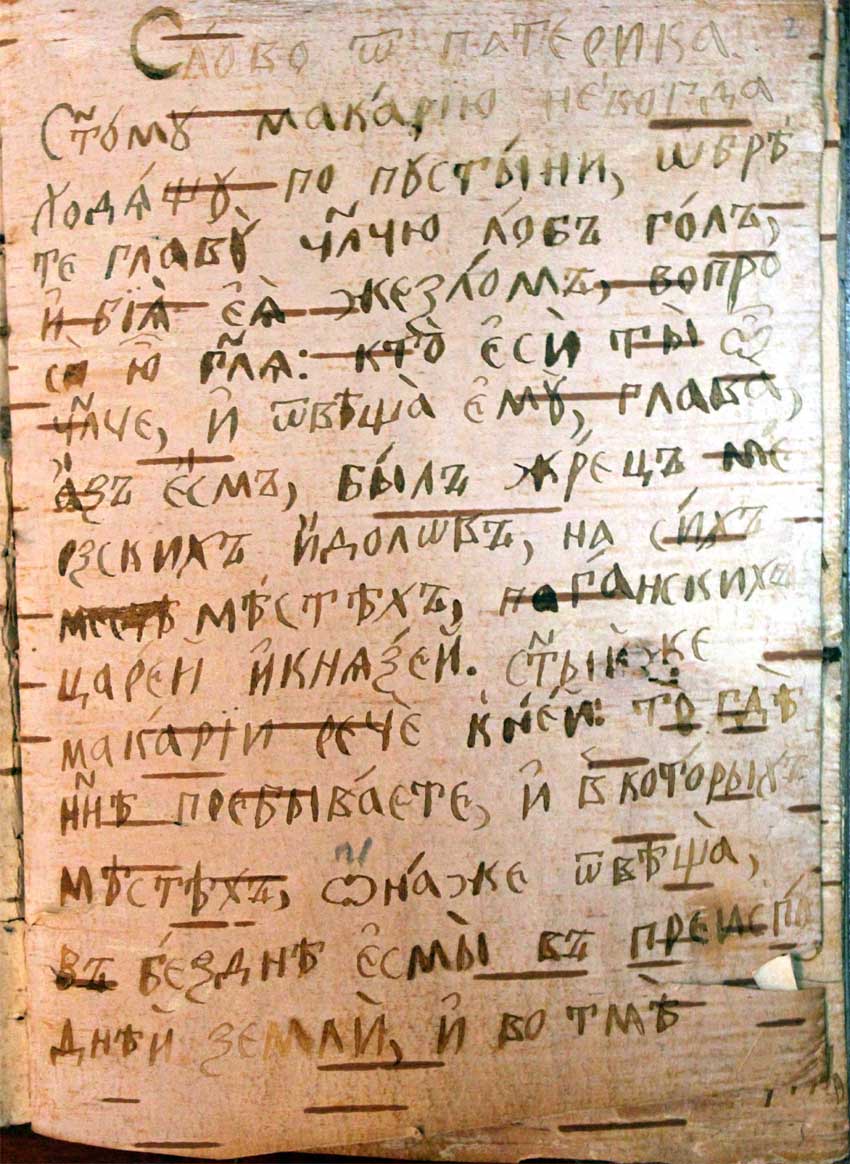 Сло́во ѿ патерика. 2
Ст҃о́мꙋ мака́рїю не́когда
ходѧ́щꙋ по пꙋсты́ни, ѡ҆брѣ́
те главꙋ̀ чл҃чю ло́бъ го́лъ,
и҆ бїѧ̀ є҆ѧ̀ жезло́мъ, вопро
сѝ ю҆̀ гл҃ѧ: кто̀ є҆сѝ ты̀ ѽ
чл҃че, и҆ ѿвѣща̀ є҆мꙋ̀, глава̀,
а҆́зъ є҆́смъ, бы́лъ жре́цъ ме́
рзскихъ и҆́долѡвъ, на си́хъ
мѣ́стѣхъ, пога́нскихъ
царе́й и҆кнѧзе́й. ст҃ы́й же
мака́рїи речѐ к̾не́й: то̀ гдѣ̀
нн҃ѣ пребыва́ете, и҆ в̾кото́рыхъ
мѣ́стѣхъ, ѻ҆на́же ѿвѣща̀,
въ бе́зднѣ є҆смы̀ въ преиспо́
днѣй землѝ, и҆ во тмѣ̀